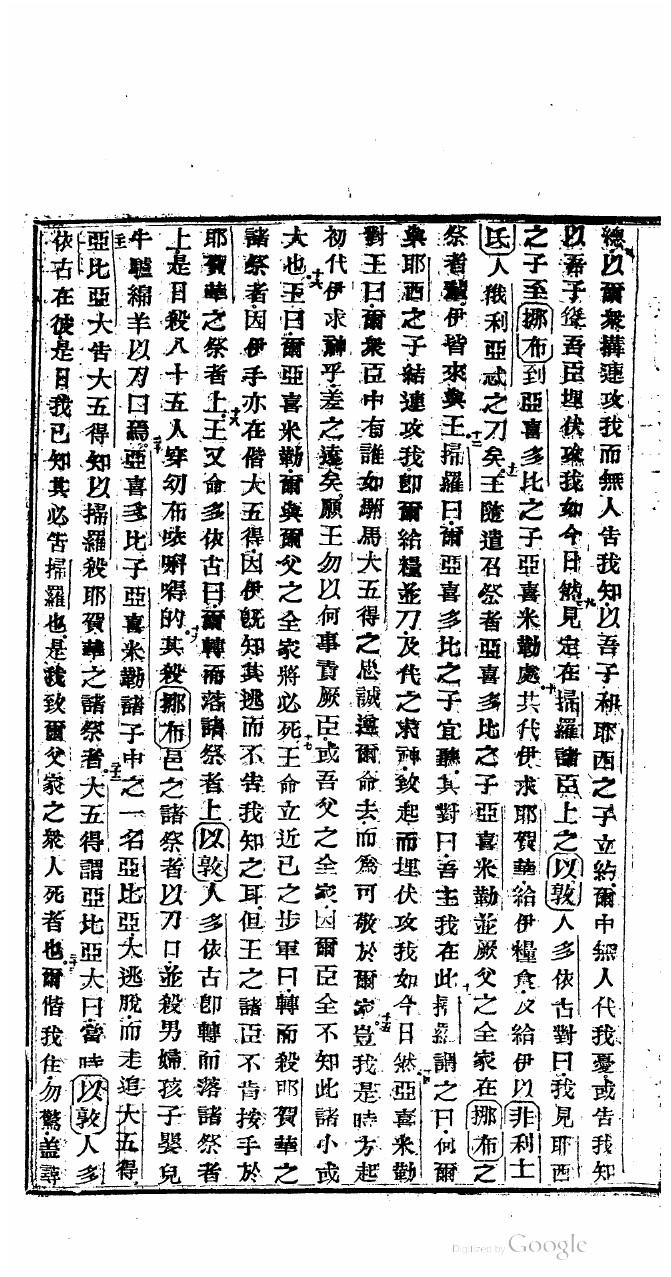 總以爾衆搆連攻我而無人告我知以吾子和耶西之子立約爾中無人代我憂或告我知
以吾子從吾臣埋伏攻我如今日然九見定在掃羅諸臣上之以敦人多依古對曰我見耶西
之子至挪布到亞喜多比之子亞喜米勒處十其代伊求耶賀華給伊糧食及給伊以非利士
氐人俄利亞忒之刀矣十一王隨遣召祭者亞喜多比之子亞喜米勒並厥父之全家在挪布之
祭者伊皆來與王十二掃羅曰爾亞喜多比之子宜聽其對曰吾主我在此十三掃羅謂之曰何爾
與耶西之子結連攻我卽爾給糧並刀及代之求神致起而埋伏攻我如今日然十四亞喜米勒
對王曰爾衆臣中有誰如駙馬大五得之忠誠遵爾命去而爲可敬於爾家十五豈我是時方起
初代伊求神乎差之遠矣願王勿以何事責厥臣或吾父之全家因爾臣全不知此諸小或
大也十六王曰爾亞喜米勒爾與爾父之全家將必死十七王命立近己之步軍曰轉而殺耶賀華之
諸祭者因伊手亦在偕大五得因伊旣知其逃而不告我知之耳但王之諸臣不肯按手於
耶賀華之祭者上十八王又命多依古曰爾轉而落諸祭者上以敦人多依古卽轉而落諸祭者
上是日殺八十五人穿幼布的十九其殺挪布邑之諸祭者以刀口並殺男婦孩子嬰兒
牛驢綿羊以刀口焉二十亞喜多比子亞喜米勒諸子中之一名亞比亞大逃脫而走追大五得
亞比亞大告大五得知以掃羅殺耶賀華之諸祭者二十二大五得謂亞比亞大曰當時以敦人多
依古在彼是日我已知其必告掃羅也是我致爾父家之衆人死者也二十三爾偕我住勿驚蓋尋
Digitized by Google